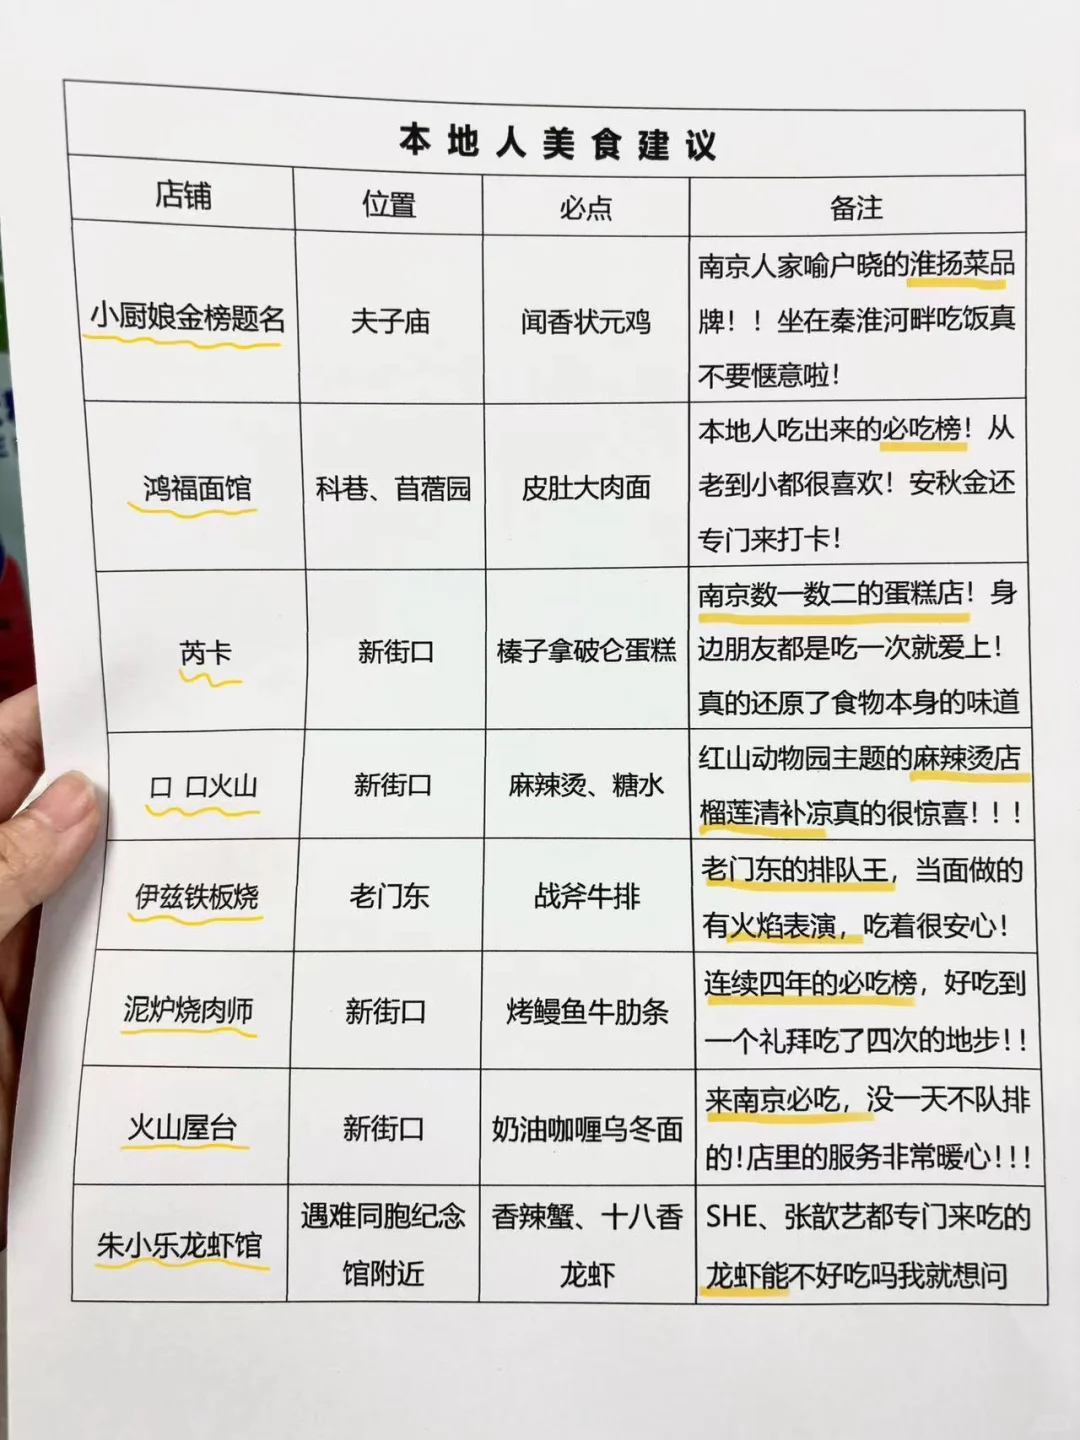 本地人美食建议
店铺 位置 必点 备注
小厨娘金榜题名 夫子庙 闻香状元鸡 南京人家喻户晓的淮扬菜品
牌！！坐在秦淮河畔吃饭真
不要惬意啦！
鸿福面馆 科巷、苜蓿园 皮肚大肉面 本地人吃出来的必吃榜！从
老到小都很喜欢！安秋金还
专门来打卡！
芮卡 新街口 榛子拿破仑蛋糕 南京数一数二的蛋糕店！身
边朋友都是吃一次就爱上！
真的还原了食物本身的味道
口 口火山 新街口 麻辣烫、糖水 红山动物园主题的麻辣烫店
榴莲清补凉真的很惊喜！！！
伊兹铁板烧 老门东 战斧牛排 老门东的排队王，当面做的
有火焰表演，吃着很安心！
泥炉烧肉师 新街口 烤鳗鱼牛肋条 连续四年的必吃榜，好吃到
一个礼拜吃了四次的地步！！
火山屋台 新街口 奶油咖喱乌冬面 来南京必吃，没一天不队排
的！店里的服务非常暖心！！！
朱小乐龙虾馆 遇难同胞纪念
馆附近 香辣蟹、十八香
龙虾 SHE、张歆艺都专门来吃的
龙虾能不好吃吗我就想问